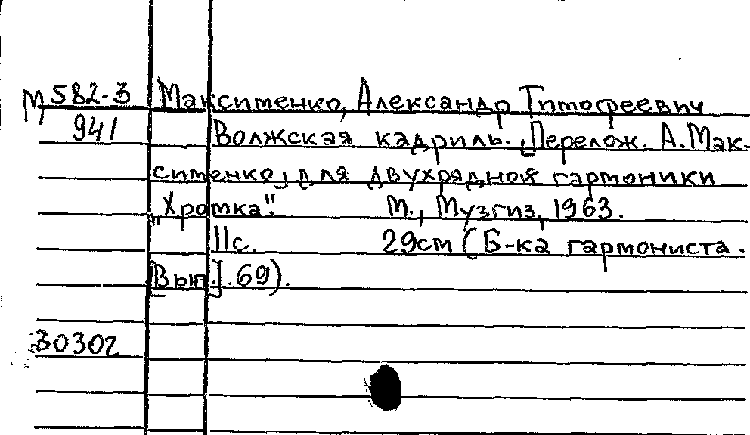 М 582-3 Максименко, Александр Тимофеевич
941 Волжская кадриль. [Перелож. А. Мак-
сименко] для двухрядной гармоники
"Хромка". М., Музгиз, 1963.
11с. 29см (Б-ка гармониста.
Вып[.] 69).
30302